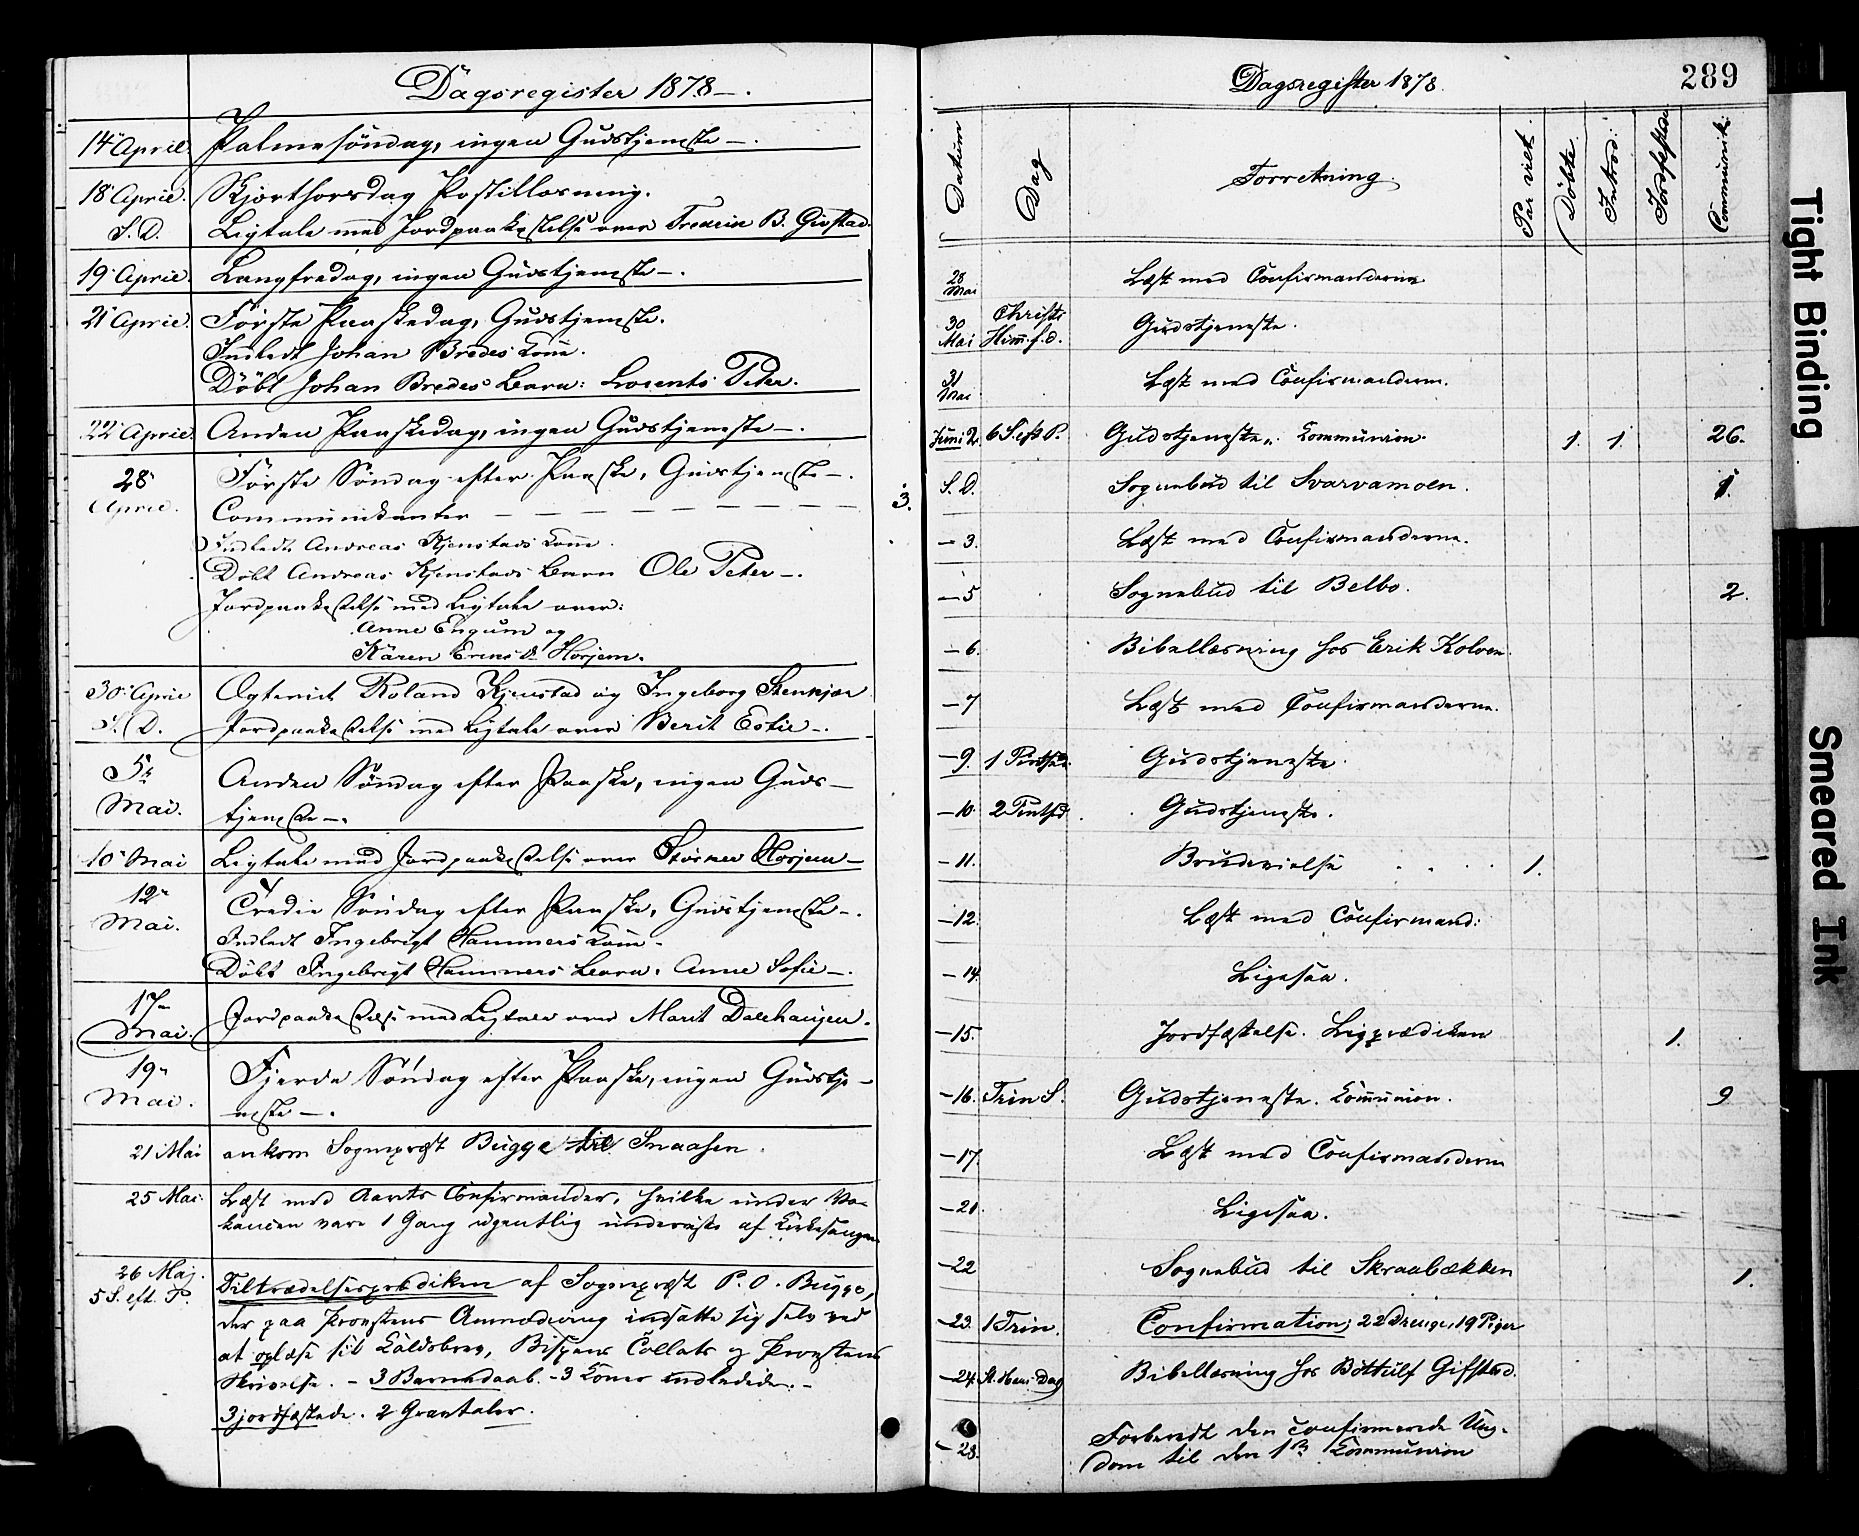 Dagsregister 1878.
14 April. Palmesöndag, ingen Gudstjeneste.
18 April. Skjærthorsdag Postillæsning.
S. D. Ligtale med Jordpaakastelse over Fredrik B. Gifstad.
19 April. Langfredag, ingen Gudstjeneste.
21 April. Første Paaskedag, Gudstjeneste.
Indledt Johan Bredes Kone.
Döbt Johan Bredes Barn: Lorents Peter.
22 April. Anden Paaskedag, ingen Gudstjeneste.
28 April. Første Söndag efter Paaske, Gudstjeneste.
Communikanter — — — — — — — — — 3.
Indledt Andreas Kjenstads Kone.
Döbt Andreas Kjenstads Barn Ole Peter.
Jordpaakastelse med Ligtale over:
Anne Engum og
Karen Horjem.
30 April Ægteviet Roland Kjenstad og Ingeborg Stenkjær
S. D. Jordpaakastelse med Ligtale over Berit
5 Mai. Anden Söndag efter Paaske, ingen Guds-
tjeneste.
10 Mai Ligtale med Jordpaakastelse over Horjem
12 Mai. Tredie Söndag efter Paaske, Gudstjeneste.
Indledt Ingebrigt Hammers Kone.
Döbt Ingebrigt Hammers Barn: Anne Sofie.
17 Mai. Jordpaakastelse med Ligtale over Marit
19 Mai. Fjerde Söndag efter Paaske, ingen Gudstje-
neste.
21 Mai ankom Sognepræst Bugge til Snaasen.
25 Mai. Læst med Aarets Confirmander, hvilke under Va-
kancen vare 1 Gang ugentlig underviste af Kirkesangeren
26 Maj. 5 S. eft. P. Tiltrædelsesprædiken af Sognepræst P. O. Bugge,
der paa Provstens Anmodning indsatte sig selv ved
at oplæse sit Kaldsbrev, Bispens Collats og Provstens
Skrivelse. - 3 Barnedaab. - 3 Koner indledede. -
3 jordfæstede. 2 Gravtaler.
Dagsregister 1878. 289
Datum Dag Forretning. Par viet. Döbte. Introd: Jordfæstelser Communik:
28 Mai Læst med Confirmanderne
30 Mai Christi Himf. d. Gudstjeneste.
31 Mai Læst med Confirmanderne.
Juni 2 6 S. eft P. Gudstjeneste. Kommunion. 1. 1. 26.
S. D. Sognebud til Svarvamoen. 1.
- 3. Læst med Confirmanderne.
- 5 Sognebud til Belbo. 2.
- 6. Bibellæsning hos Erik Kolven.
- 7 Læst med Confirmanderne.
- 9. 1 Pintsed. Gudstjeneste.
- 10. 2 Pintsd. Gudstjeneste.
- 11. Brudevielse . . . 1.
- 12. Læst med Confirmand:
- 14. Ligesaa.
- 15. Jordfæstelse. Ligprædiken 1.
- 16. Trin S. Gudstjeneste. Kommunion. 9
- 17. Læst med Confirmanderne
- 21. Ligesaa.
- 22 Sognebud til Skraabækken 1.
- 23. 1 Trin. Confirmation; 22 Drenge, 19 Piger
- 24. St. Hans Dag Bibellæsning hos Bottulf Gifstad.
- 28. Forberedt den confirmerede Ung-
dom til den 1ste Kommunion
Tight Binding
Smeared Ink